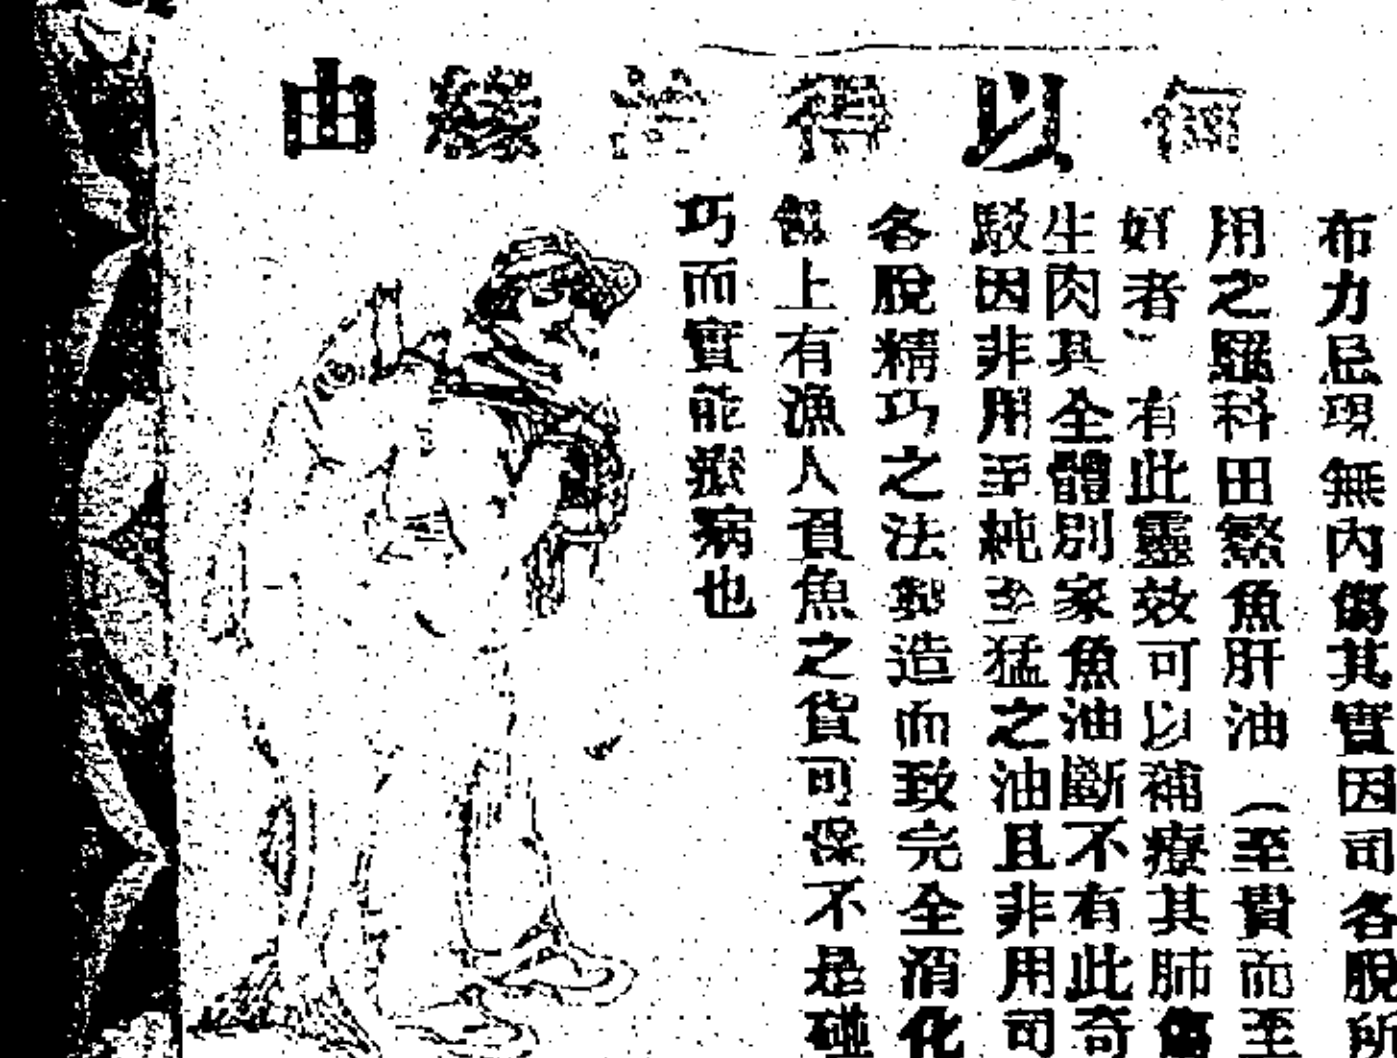 何以得其緣由
布力忌現無內傷其實因司各脫所
用之羅科田鰲魚肝油（至貴而至
好者、有此靈效可以補療其肺傷
生肉具全體別家魚油斷不有此奇
駁因非用至純至猛之油且非用司
各脫精巧之法製造而致完全消化
包上有漁人負魚之貨可保不是碰
巧而實能療病也